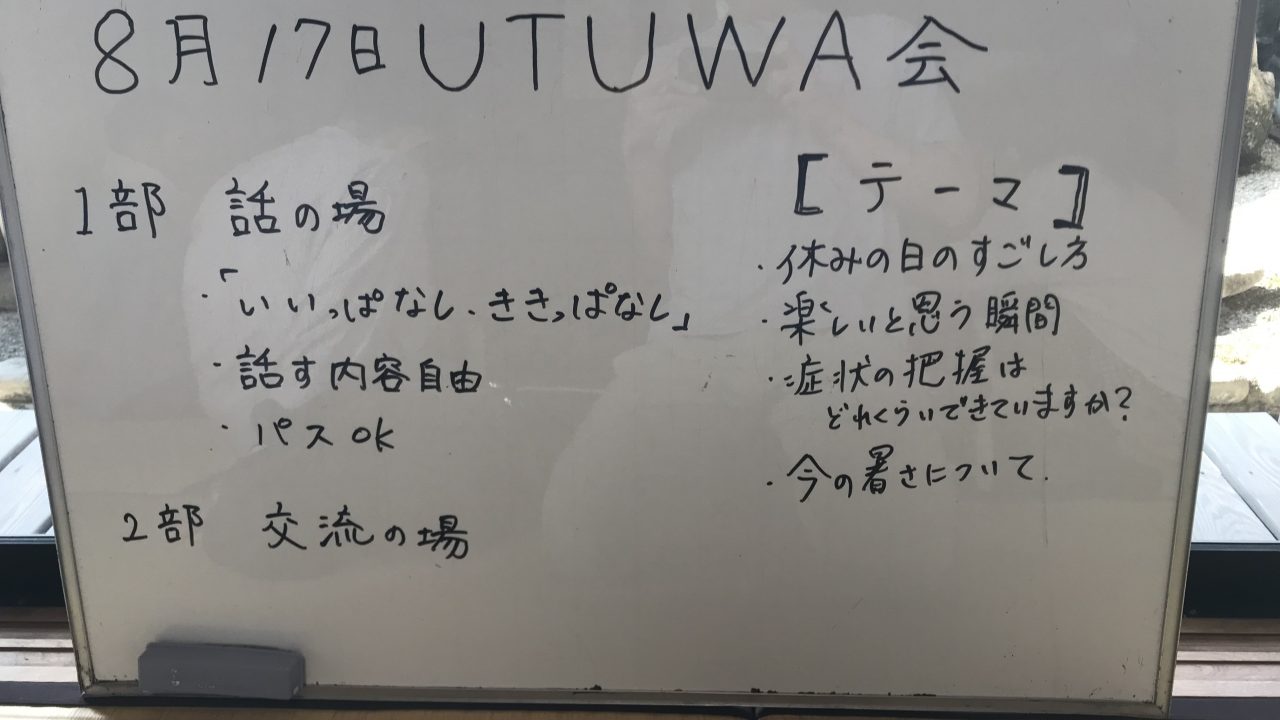 8月17日UTUWA会
1部 話の場
・「いいっぱなし・ききっぱなし」
・話す内容自由
・パスOK
2部 交流の場
[テーマ]
・休みの日のすごし方
・楽しいと思う瞬間
・症状の把握は
どれくらいできていますか?
・今の暑さについて.